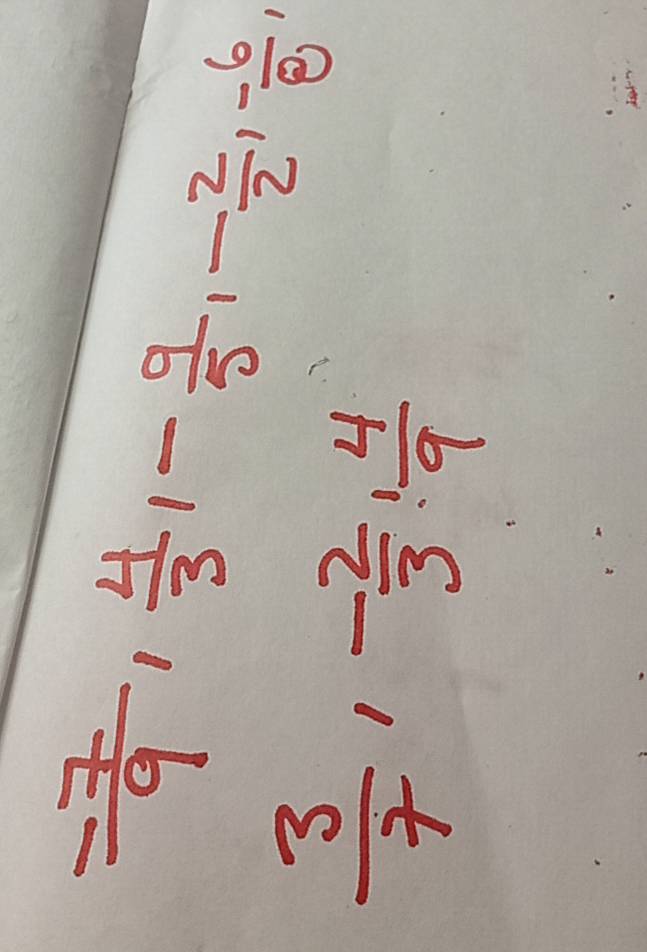 -7/9, 4/3, -9/5, -2/2, -6/8,
3/7, -2/3, 4/9